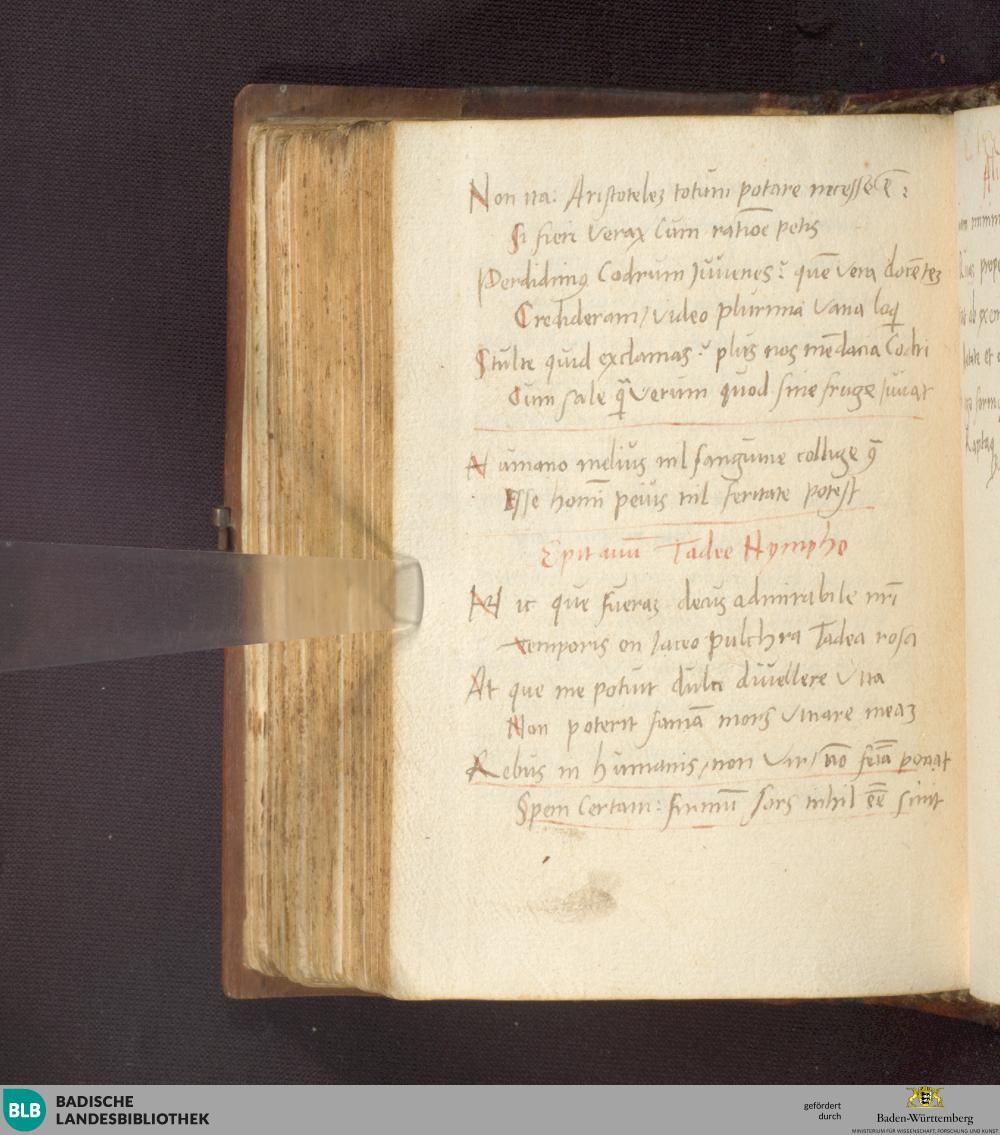 Non ita: Aristoteles totum potare necesse ē:
Si fieri verax cum ratiōe petis
Perdidimus Codrum Juvenes: quē vera docētes
Credideram / video plurima vana loq
Stulte quid exclamas: plus nos mēdacia Codri
Cum sale q̄ verum quod sine fruge iuuat
Humano melius nil sanguine collige
Esse homi peius nil feritate potest
Tadee Nymphe
Hic que fueras decus admirabile nr̄i
temporis en Iaceo pulchra Tadea rosa
At que me potuit dulci diuellere vita
Non poterit famā mors vitiare meas
Rebus in humanis, non vir / nō fēīa ponat
Spem certam: firmū sors nihil ēē sinit
BLB
BADISCHE
LANDESBIBLIOTHEK
gefördert
durch
Baden-Württemberg
MINISTERIUM FÜR WISSENSCHAFT, FORSCHUNG UND KUNST